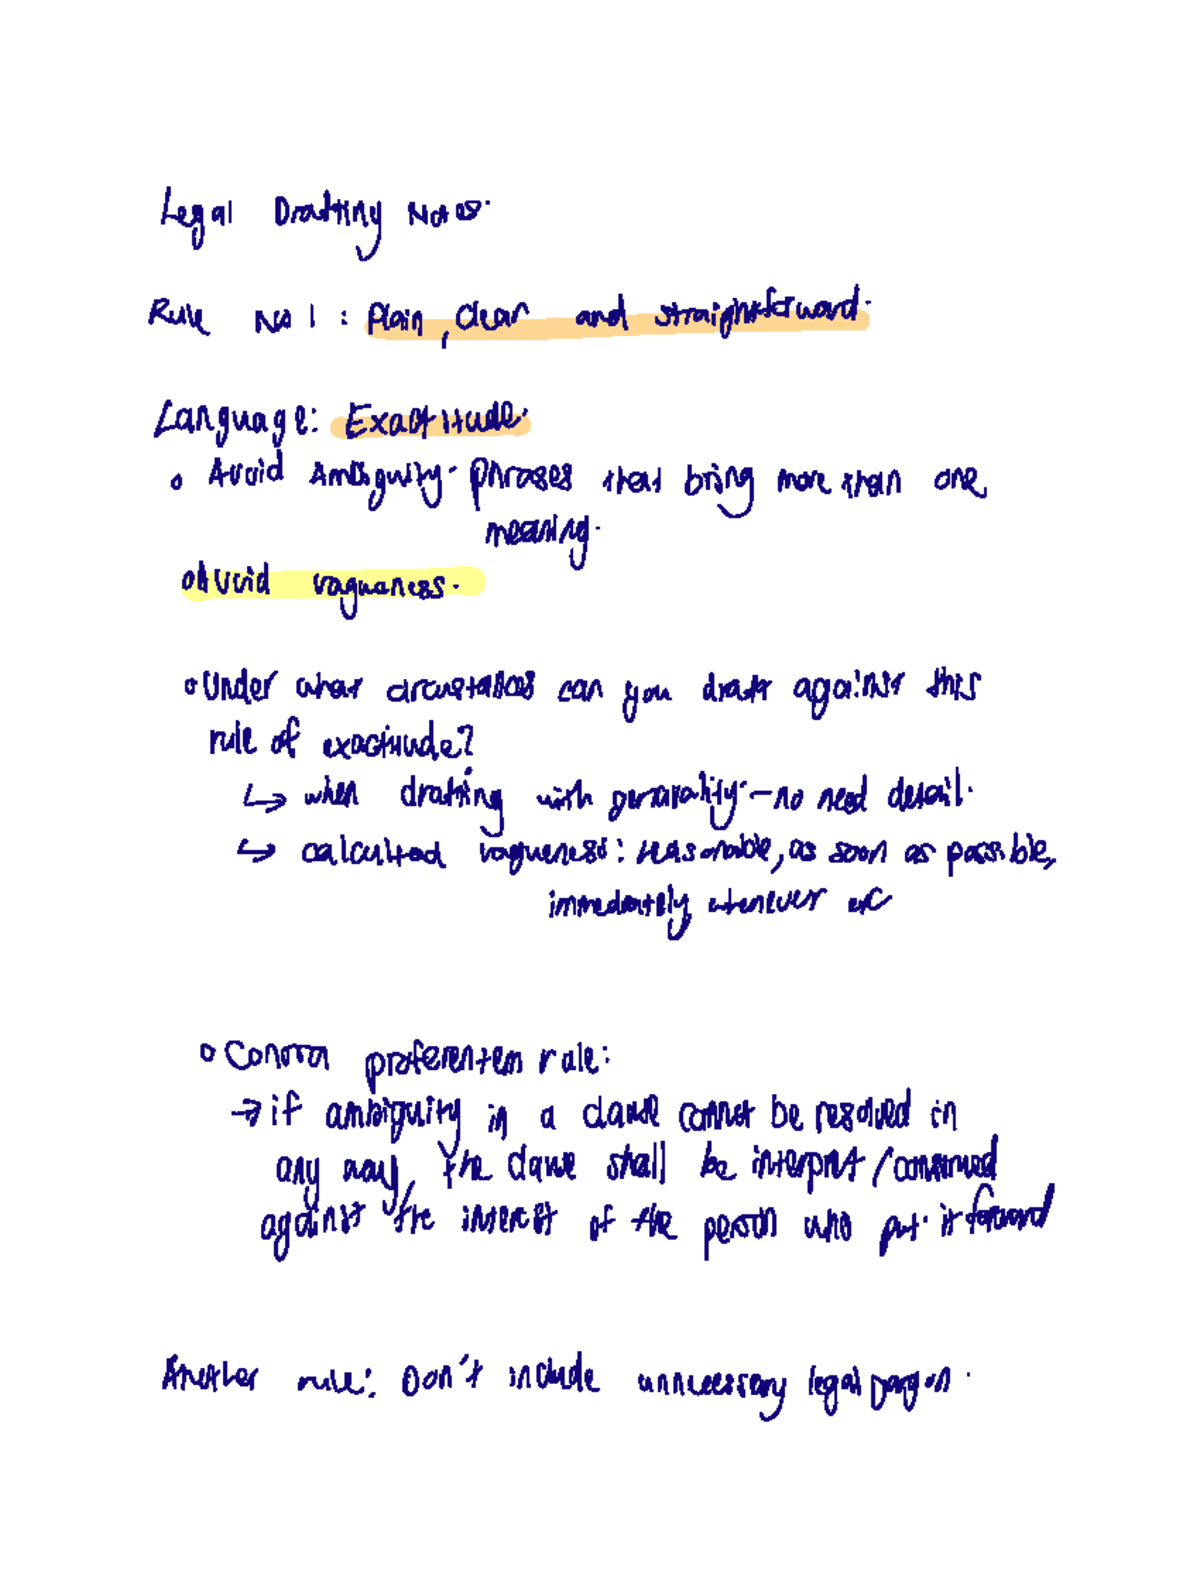 Legal Drafting Notes.
Rule No 1 : Plain, Clear and straightforward.
Language: Exactitude.
o Avoid Ambiguity - phrases that bring more than one
meaning.
o Avoid vagueness.
o Under what circumstances can you draft against this
rule of exactitude?
↳ when drafting with generality - no need detail.
↳ calculated vagueness: reasonable, as soon as possible,
immediately whenever etc
o Contra proferentem rule:
→ if ambiguity in a clause cannot be resolved in
any way, the clause shall be interpret / construed
against the interest of the person who put it forward
Another rule: Don't include unnecessary legal jargon.